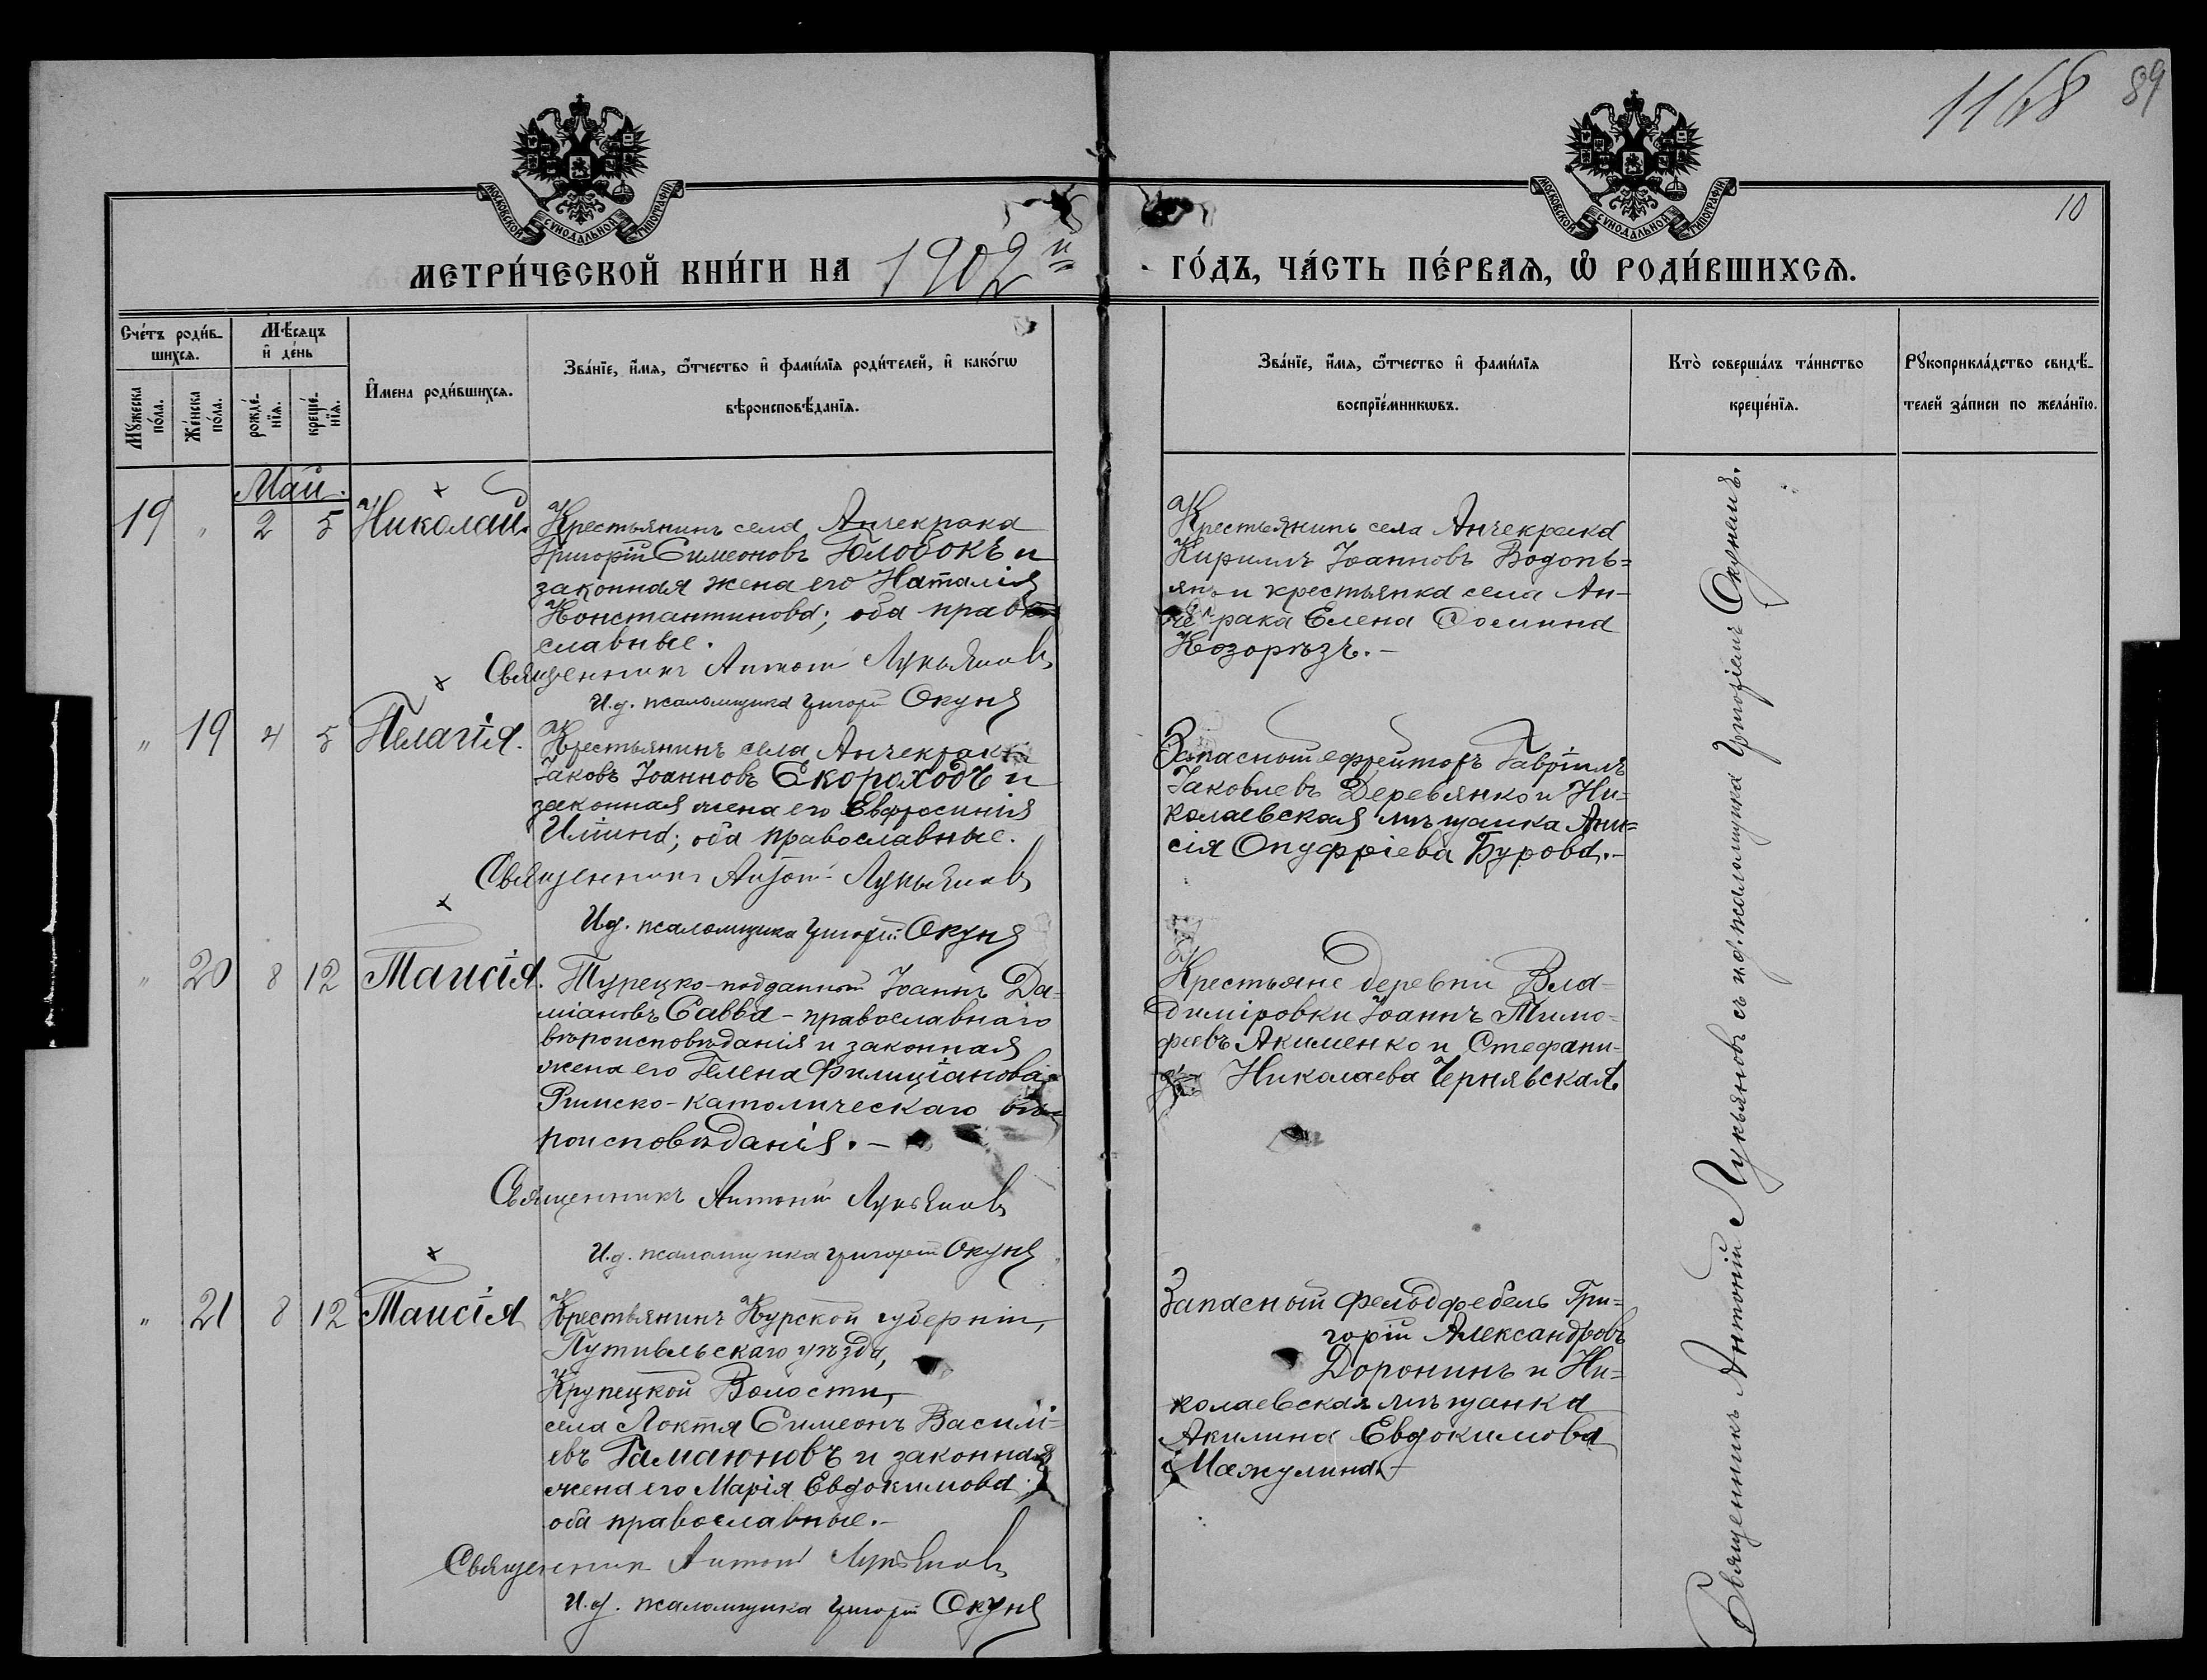 1168
89
10
МОСКОВСКОЙ СѴНОДАЛЬНОЙ ТИПОГРАФІИ
МОСКОВСКОЙ СѴНОДАЛЬНОЙ ТИПОГРАФІИ
МЕТРИ́ЧЕСКОЙ КНИ́ГИ НА 1902й
ГО́ДЪ, ЧА́СТЬ ПЕ́РВАѦ, Ѡ҆ РОДИ́ВШИХСѦ.
Сче́тъ роди́в-
шихсѧ.
Мѣ́сѧцъ
и҆ де́нь
Мꙋ́жеска
по́ла.
Же́нска
по́ла.
рожде́-
нїѧ.
креще́-
нїѧ.
И҆мена роди́вшихсѧ.
Зва́нїе, и҆́мѧ, ѻ҆́тчество и҆ фами́лїѧ роди́телей, и҆ како́гѡ
вѣроисповѣ́данїѧ.
Зва́нїе, и҆́мѧ, ѻ҆́тчество и҆ фами́лїѧ
воспрїе́мникѡвъ.
Кто̀ соверша́лъ та́инство
креще́нїѧ.
Рꙋкоприкла́дство свидѣ́-
телей за́писи по жела́нїю.
Май.
19 " 2 5 Николай.
Крестьянинъ села Анчекрака
Григорій Симеоновъ Голобокъ и
законная жена его Наталія
Константинова; оба право
славные.
Священникъ Антоній Лукьяновъ
И.д. псаломщика Григорій Окунь
Крестьянинъ села Анчекрака
Кириллъ Іоанновъ Водопь=
янъ и крестьянка села Ан-
чекрака Елена Ѳомина
Козорѣзъ.-
" 19 4 5 Пелагія.
Крестьянинъ села Анчекрака
Іаковъ Іоанновъ Скороходъ и
законная жена его Евфросинія
Иліина; оба православные.
Священникъ Антоній Лукьяновъ
И.д. псаломщика Григорій Окунь
Запасный ефрейторъ Гавріилъ
Іаковлевъ Деревянко и Ни-
колаевская мѣщанка Ани=
сія Онуфріева Бурова.-
" 20 8 12 Таисія.
Турецко-подданный Іоаннъ Да=
міановъ Савва - православнаго
вѣроисповѣданія и законная
жена его Гелена Филиціанова
Римско-католическаго вѣ=
роисповѣданія.-
Священникъ Антоній Лукьяновъ
И.д. псаломщика Григорій Окунь
Крестьяне деревни Вла-
диміровки Іоаннъ Тимо-
феевъ Акименко и Стефани-
да Николаева Чернявская.
" 21 8 12 Таисія
Крестьянинъ Курской губерніи,
Путивльскаго уѣзда,
Крупецкой Волости,
села Локтя Симеонъ Василі-
евъ Гамаюновъ и законная
жена его Марія Евдокимова
оба православные.-
Священникъ Антоній Лукьяновъ
И.д. псаломщика Григорій Окунь
Запасный фельдфебель Гри=
горій Александровъ
Доронинъ и Ни-
колаевская мѣщанка
Акилина Евдокимова
Мажулина.-
Священникъ Антоній Лукьяновъ съ и.д. псаломщика Григоріемъ Окунемъ.